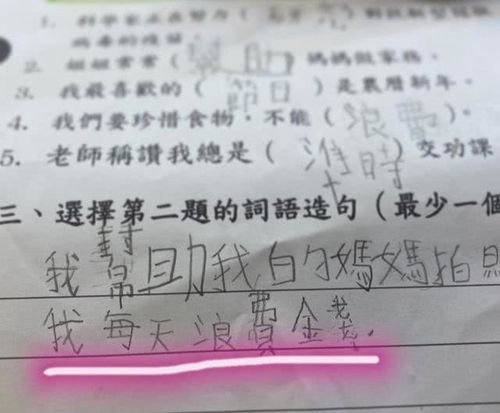 1. 科學家正在努力（ ）對抗新型冠狀
病毒的疫苗。
2. 姐姐常常（幫助）媽媽做家務。
3. 我最喜歡的（節日）是農曆新年。
4. 我們要珍惜食物，不能（浪費）。
5. 老師稱讚我總是（準時）交功課
三、選擇第二題的詞語造句（最少一個
我幫助我的媽媽拍照
我每天浪費金錢。